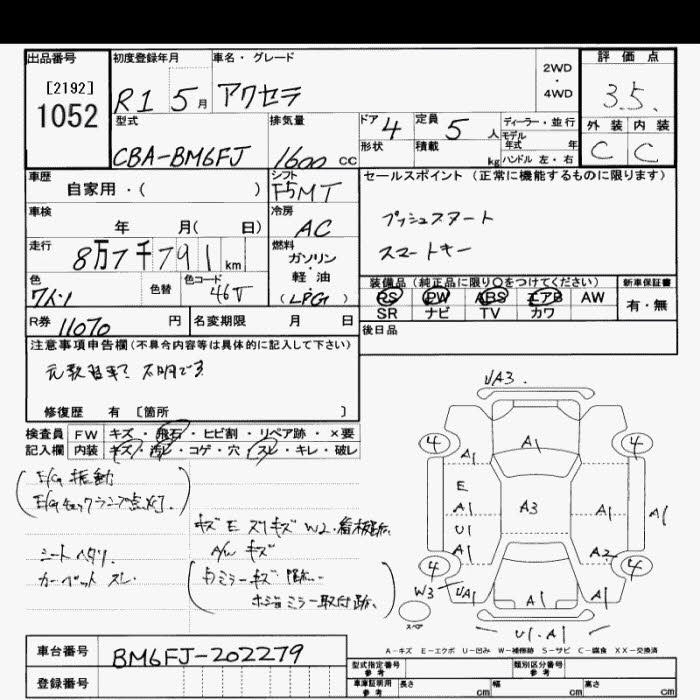 出品番号
[2192]
1052
初度登録年月
R1 5月
車名・グレード
アクセラ
2WD
・
4WD
評価点
3.5.
外装 内装
C C
型式
CBA-BM6FJ
排気量
1600 cc
ドア 4
形状
定員 5 人
積載 kg
ディーラー・並行
モデル年式 年
ハンドル 左・右
車歴
自家用・( )
シフト
F5MT
セールスポイント (正常に機能するものに限ります)
プッシュスタート
スマートキー
車検
年 月( 日)
冷房
AC
走行
8万7千791km
燃料
ガソリン
・
軽油
(LPG)
色
色替
色コード
46V
装備品 (純正品に限り○をつけてください)
PS PW ABS エアB AW
SR ナビ TV カワ
新車保証書
有・無
R券 11070 円
名変期限 月 日
後日品
注意事項申告欄(不具合内容等は具体的に記入して下さい)
元教習車? 不明です
修復歴 有 [箇所 ]
検査員 FW キズ・飛石・ヒビ割・リペア跡・×要
記入欄 内装 キズ・汚レ・コゲ・穴・スレ・キレ・破レ
(E/g振動
E/gチェックランプ点灯.)
シートヘタリ.
カーペットスレ.
キズ E スリキズ W2.看板跡.
A/W キズ
ホジョミラー取付跡.)
UA3.
4 4
A1 A1
E
A1 A3 A1 A1
U1
A1 A2
4 4
W3 UA1 A1 A1
スペア
U1.A1
A-キズ E-エクボ U-凹み W-補修跡 S-サビ C-腐食 XX-交換済
車台番号 BM6FJ-202279
登録番号
型式指定番号
参考
類別区分番号
参考
車庫証明用
参考
長さ cm 幅 cm 高さ cm